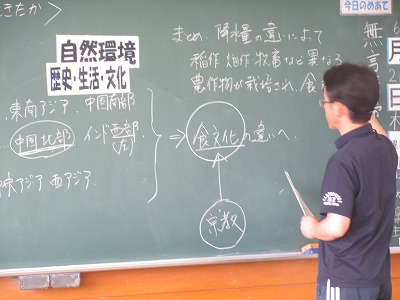 きたか>
自然環境
歴史・生活・文化
東南アジア 中国南部
中国北部 インド西部
アジア 西アジア
⇒ 食文化の違いへ
宗教
まとめ 降水量の違いによって
稲作 畑作 牧畜など異なる
農作物が栽培され、食
今日のめあて
無言
6
月
2
日
木